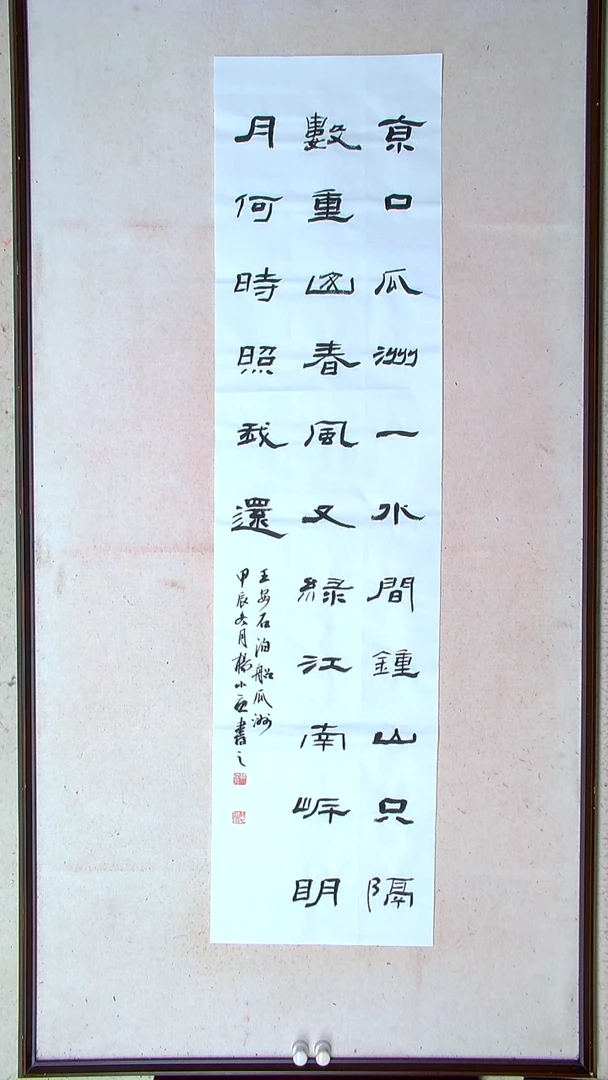 京口瓜洲一水間鍾山只隔
數重山春風又綠江南岸明
月何時照我還
王安石泊船瓜洲
甲辰冬月楊小書之